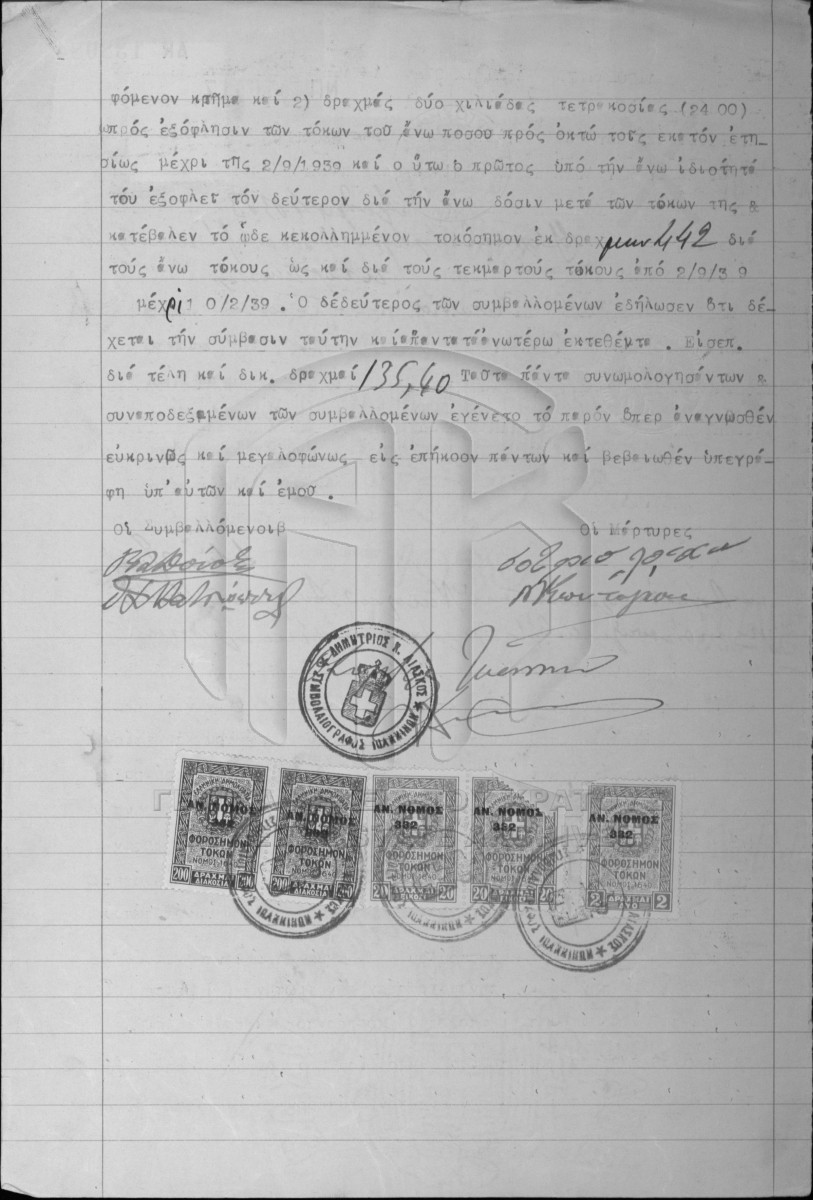 φόμενον κτῆμα καί 2) δραχμάς δύο χιλιάδας τετρακοσίας (2400)
πρός ἐξόφλησιν τῶν τόκων τοῦ ἄνω ποσοῦ πρός ὀκτώ τοῖς εκατόν ἐτη-
σίως μέχρι τῆς 2/9/1939 καί οὕτω ὁ πρῶτος ὑπό τήν ἄνω ἰδιότητά
τού ἐξοφλεῖ τόν δεύτερον διά τήν ἄνω δόσιν μετά τῶν τόκων της &
κατέβαλεν τό ᾧδε κεκολλημμένον τοκόσημον ἐκ δραχμῶν 442 διά
τούς ἄνω τόκους ὡς καί διά τούς τεκμαρτούς τόκους ἀπό 2/9/39
μέχρι 10/2/39. Ὁ δέδεύτερος τῶν συμβαλλομένων ἐδήλωσεν ὅτι δέ-
χεται τήν σύμβασιν ταύτην καίἅπαντατάἀνωτέρω ἐκτεθέντα. Εἰσεπ.
διά τέλη καί δικ. δραχμαί 135,40 Ταῦτα πάντα συνωμολογησάντων &
συναποδεξαμένων τῶν συμβαλλομένων ἐγένετο τό παρόν ὅπερ ἀναγνωσθέν
εὐκρινῶς καί μεγαλοφώνως εἰς ἐπήκοον πάντων καί βεβαιωθέν ὑπεγρά-
φη ὑπ'αὐτῶν καί ἐμοῦ.
Οἱ Συμβαλλόμενοιβ Οἱ Μάρτυρες
ΔΗΜΗΤΡΙΟΣ Κ. ΛΙΑΣΚΟΣ
ΣΥΜΒΟΛΑΙΟΓΡΑΦΟΣ ΙΩΑΝΝΙΝΩΝ
ΑΝ. ΝΟΜΟΣ ΑΝ. ΝΟΜΟΣ ΑΝ. ΝΟΜΟΣ ΑΝ. ΝΟΜΟΣ ΑΝ. ΝΟΜΟΣ
332 332 332
ΦΟΡΟΣΗΜΟΝ ΦΟΡΟΣΗΜΟΝ ΦΟΡΟΣΗΜΟΝ ΦΟΡΟΣΗΜΟΝ ΦΟΡΟΣΗΜΟΝ
ΤΟΚΩΝ ΤΟΚΩΝ ΤΟΚΩΝ ΤΟΚΩΝ ΤΟΚΩΝ
200 200 200 200 20 20 20 20 2 2